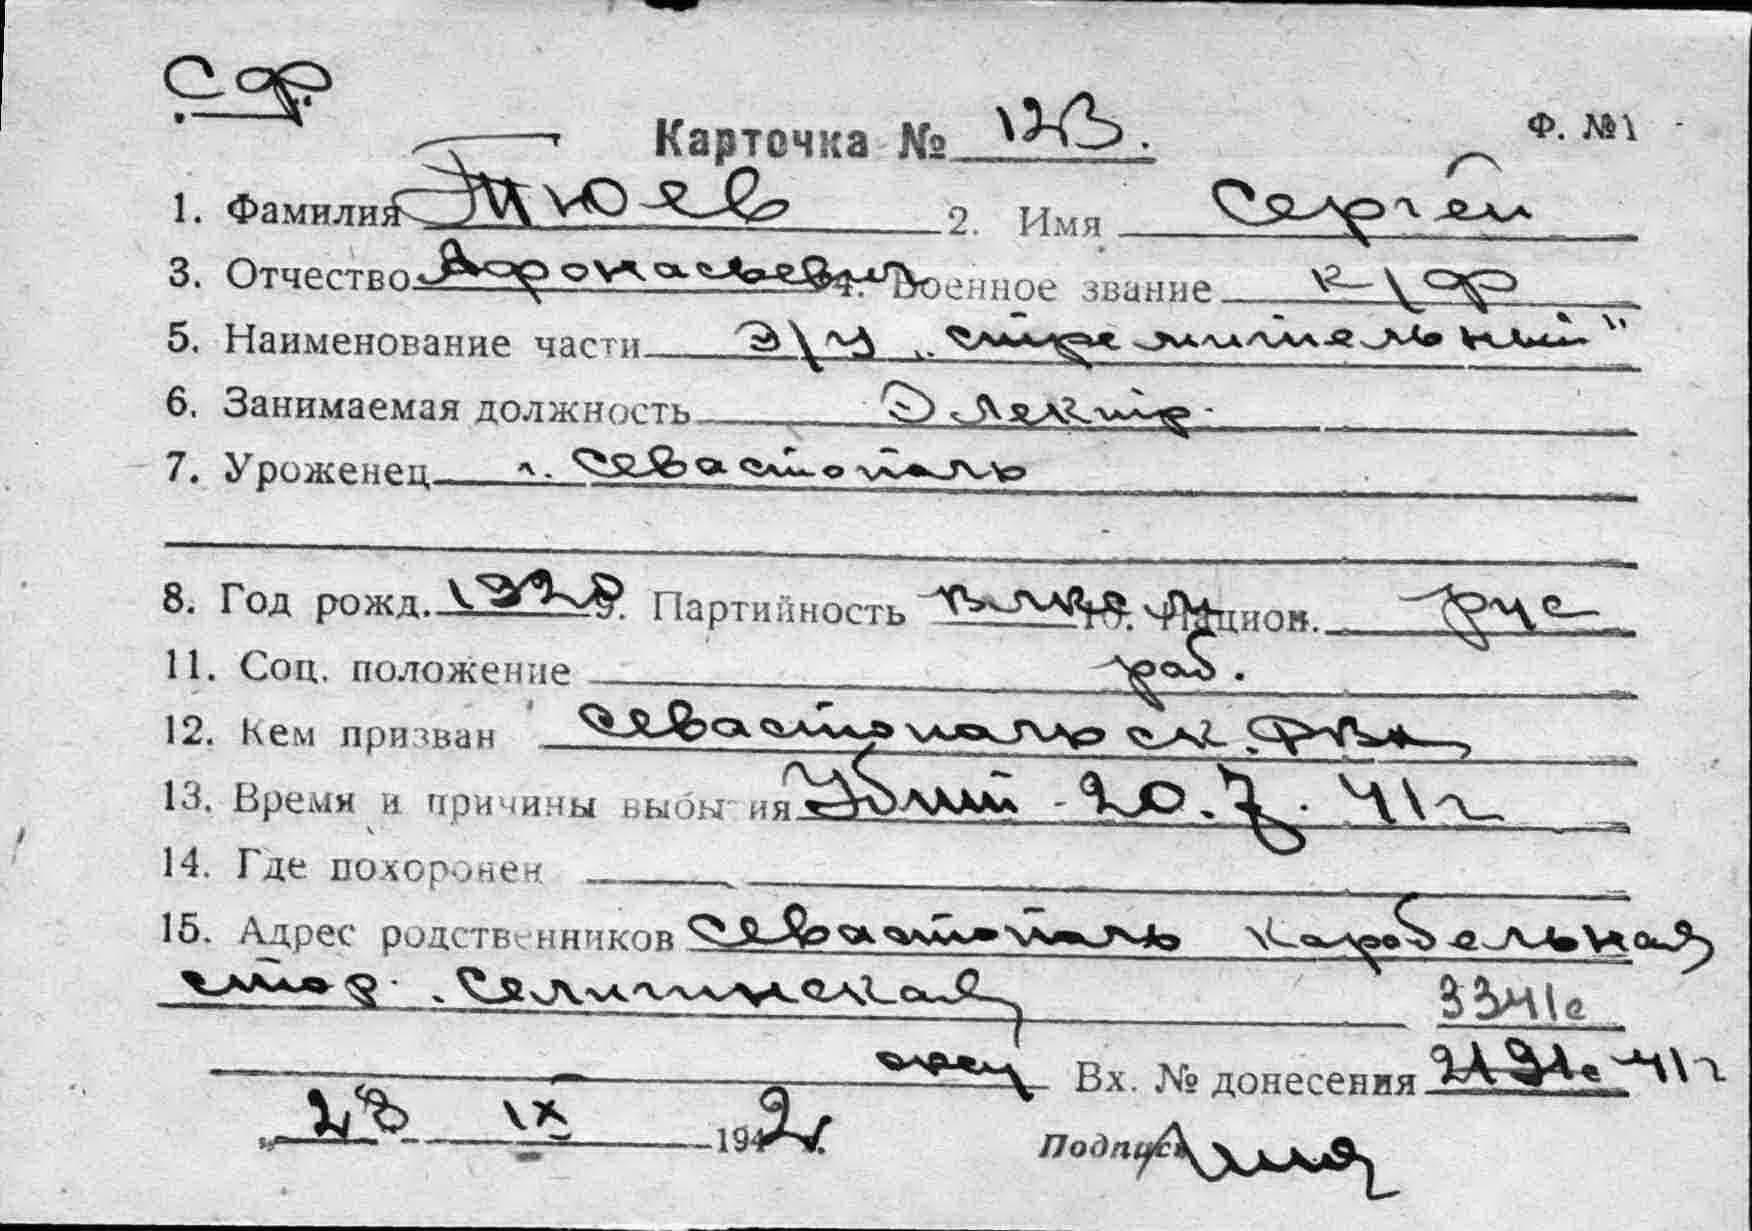 СФ
Карточка № 123.
Ф. №1
1. Фамилия Тюев 2. Имя Сергей
3. Отчество Афонасьевич 4. Военное звание к/ф
5. Наименование части Э/М „Стремительный"
6. Занимаемая должность Электр.
7. Уроженец г. Севастополь
8. Год рожд. 1920 9. Партийность ВЛКСМ 10. Национ. рус
11. Соц. положение раб.
12. Кем призван Севастопольск. РВК
13. Время и причины выбытия Убит - 20.7.41г
14. Где похоронен
15. Адрес родственников Севастополь Карабельная
стор. Селигинская
3341с
отец Вх. № донесения 2191с 41г
„ 28 IX 1942г.
Подпись